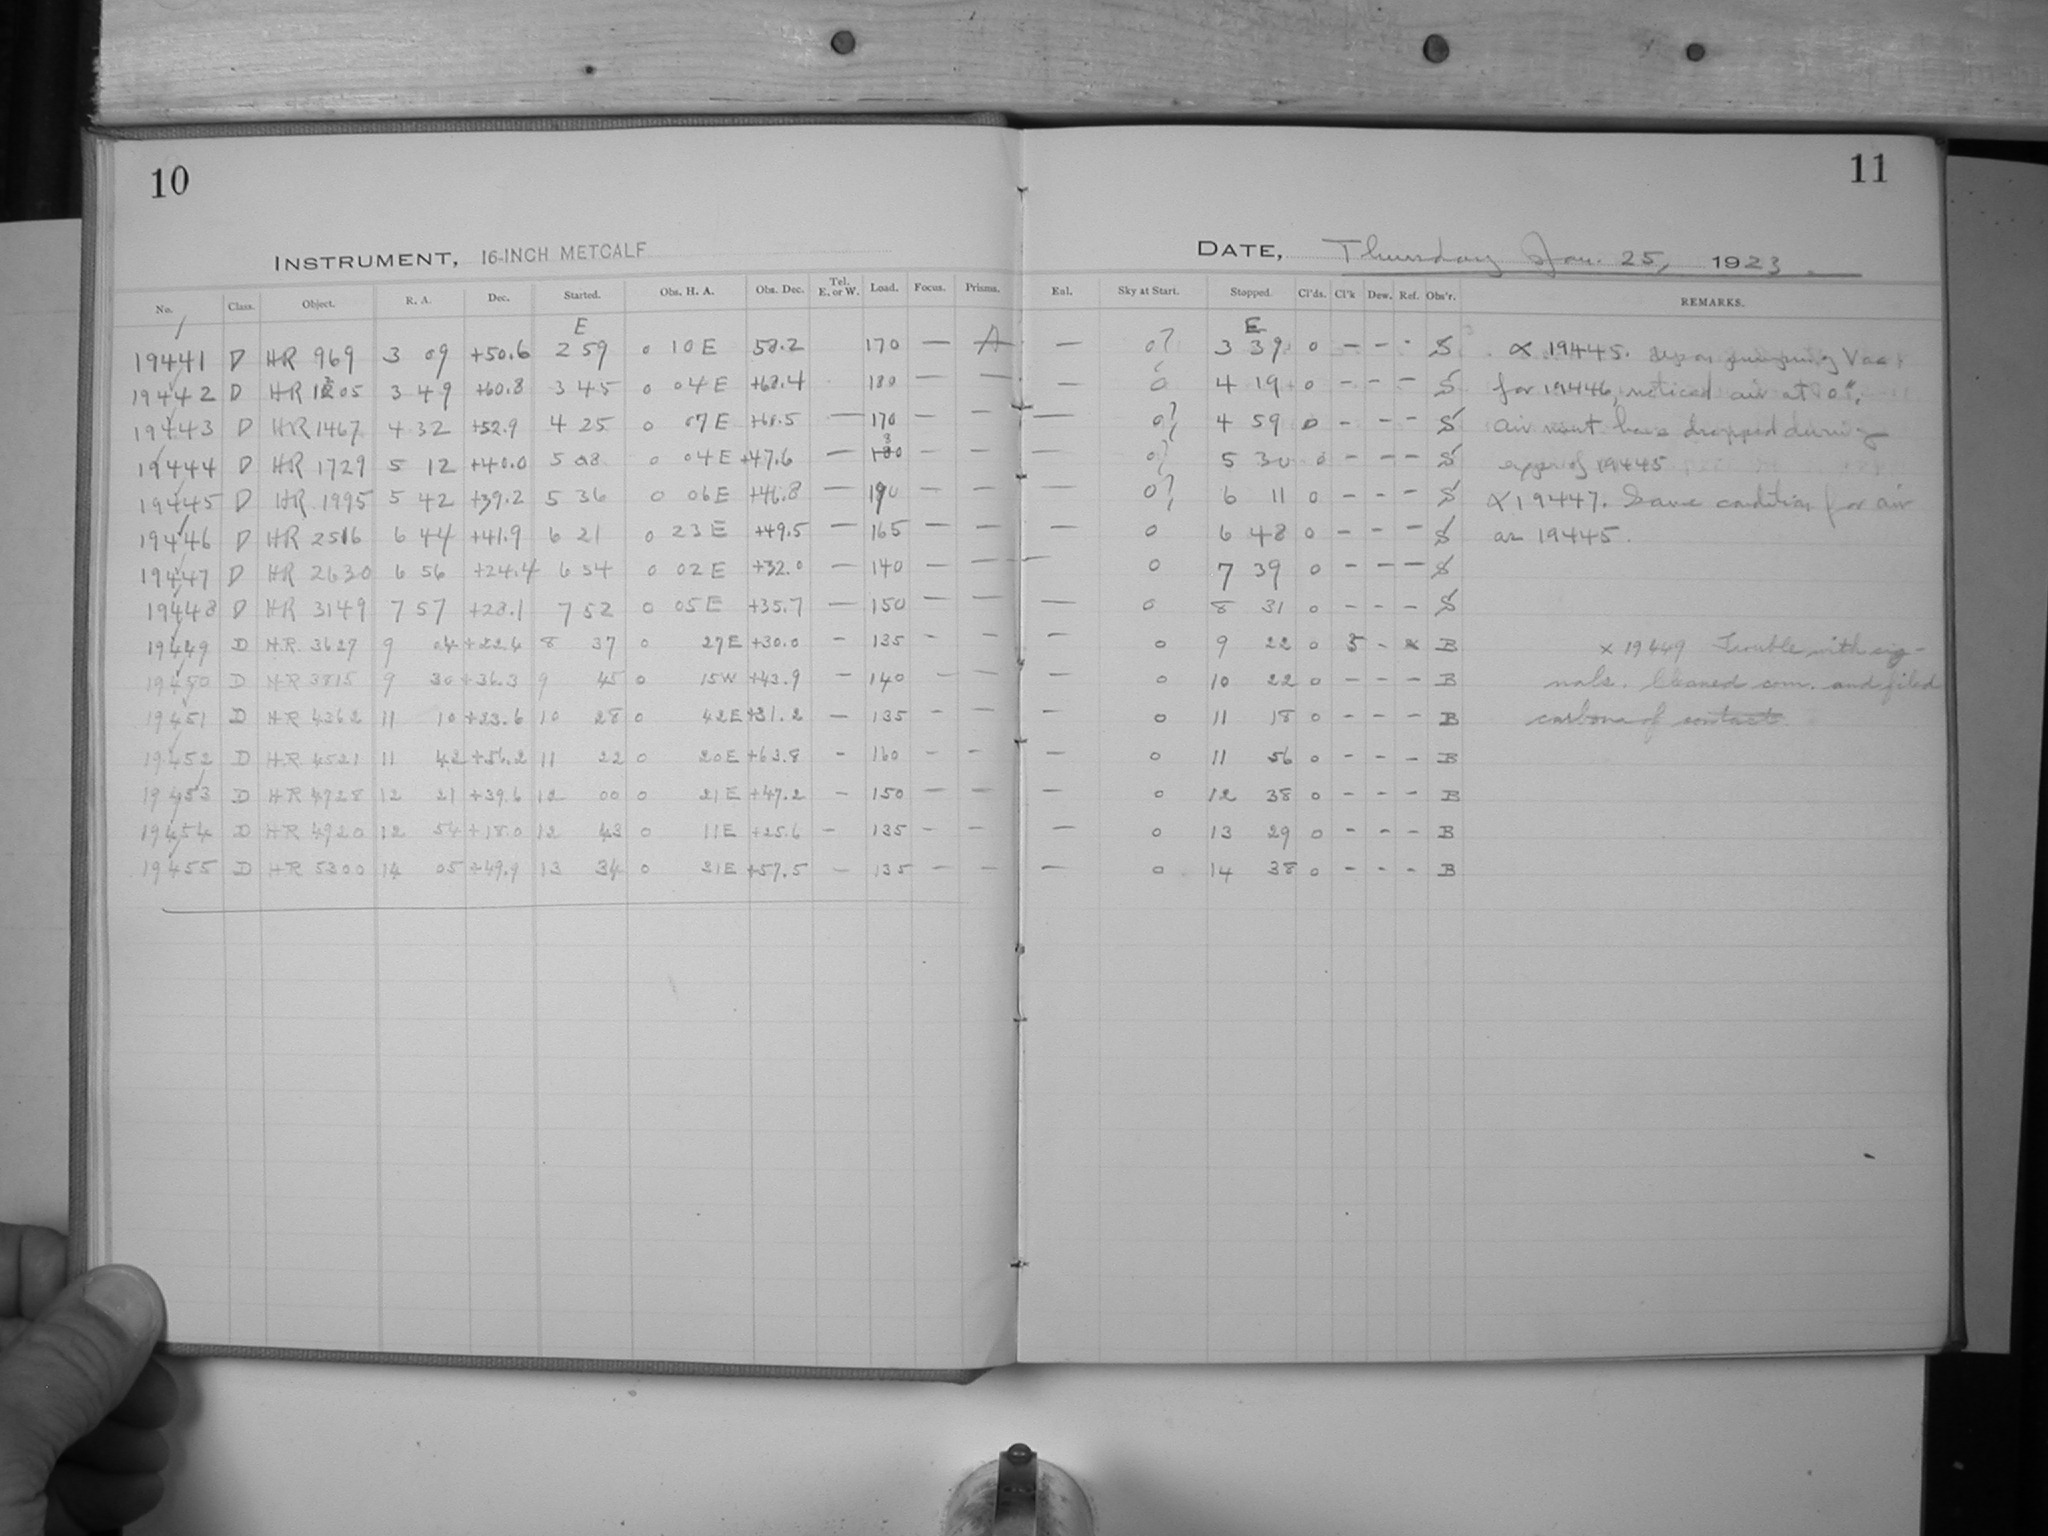 10
11
INSTRUMENT, 16-INCH METCALF
DATE, Thursday Jan. 25, 1923.
No. Class. Object. R. A. Dec. Started. Obs. H. A. Obs. Dec. Tel. E. or W. Load. Focus. Prisms. Eul. Sky at Start. Stopped. Cl'ds. Cl'k Dew. Ref. Obs'r. REMARKS.
E E
19441 D HR 969 3 09 +50.6 2 59 0 10 E 58.2 170 — A — 0? 3 39 0 – – – S α 19445. Upon Vac
19442 D HR 1205 3 49 +60.8 3 45 0 04 E +68.4 180 — — — 0 4 19 0 – – – S for 19446, noticed air at 0".
19443 D HR 1467 4 32 +52.9 4 25 0 07 E +60.5 — 170 — — — 0? 4 59 0 – – – S air must have dropped during
19444 D HR 1729 5 12 +40.0 5 08 0 04 E +47.6 — 130 — — 0? 5 30 0 – – – S expr of 19445
19445 D HR 1995 5 42 +39.2 5 36 0 06 E +46.8 — 190 — — — 0? 6 11 0 – – – S α 19447. Same condition for air
19446 D HR 2516 6 44 +41.9 6 21 0 23 E +49.5 — 165 — — — 0 6 48 0 – – – S as 19445.
19447 D HR 2630 6 56 +24.4 6 54 0 02 E +32.0 — 140 — — — 0 7 39 0 – – – S
19448 D HR 3149 7 57 +28.1 7 52 0 05 E +35.7 — 150 — — — 0 8 31 0 – – – S
19449 D HR 3627 9 04 +22.6 8 37 0 27 E +30.0 – 135 – – – 0 9 22 0 5 – x B x 19449 Trouble with sig-
19450 D HR 3815 9 30 +36.3 9 45 0 15 W +43.9 – 140 – – – 0 10 22 0 – – – B nals. Cleaned com. and filed
19451 D HR 4362 11 10 +23.6 10 28 0 42 E +31.2 – 135 – – – 0 11 18 0 – – – B carbons of contacts
19452 D HR 4521 11 42 +56.2 11 22 0 20 E +63.8 – 160 – – – 0 11 56 0 – – – B
19453 D HR 4728 12 21 +39.6 12 00 0 21 E +47.2 – 150 – – – 0 12 38 0 – – – B
19454 D HR 4920 12 54 +18.0 12 43 0 11 E +25.6 – 135 – – – 0 13 29 0 – – – B
19455 D HR 5300 14 05 +49.9 13 34 0 31 E +57.5 – 135 – – – 0 14 38 0 – – – B